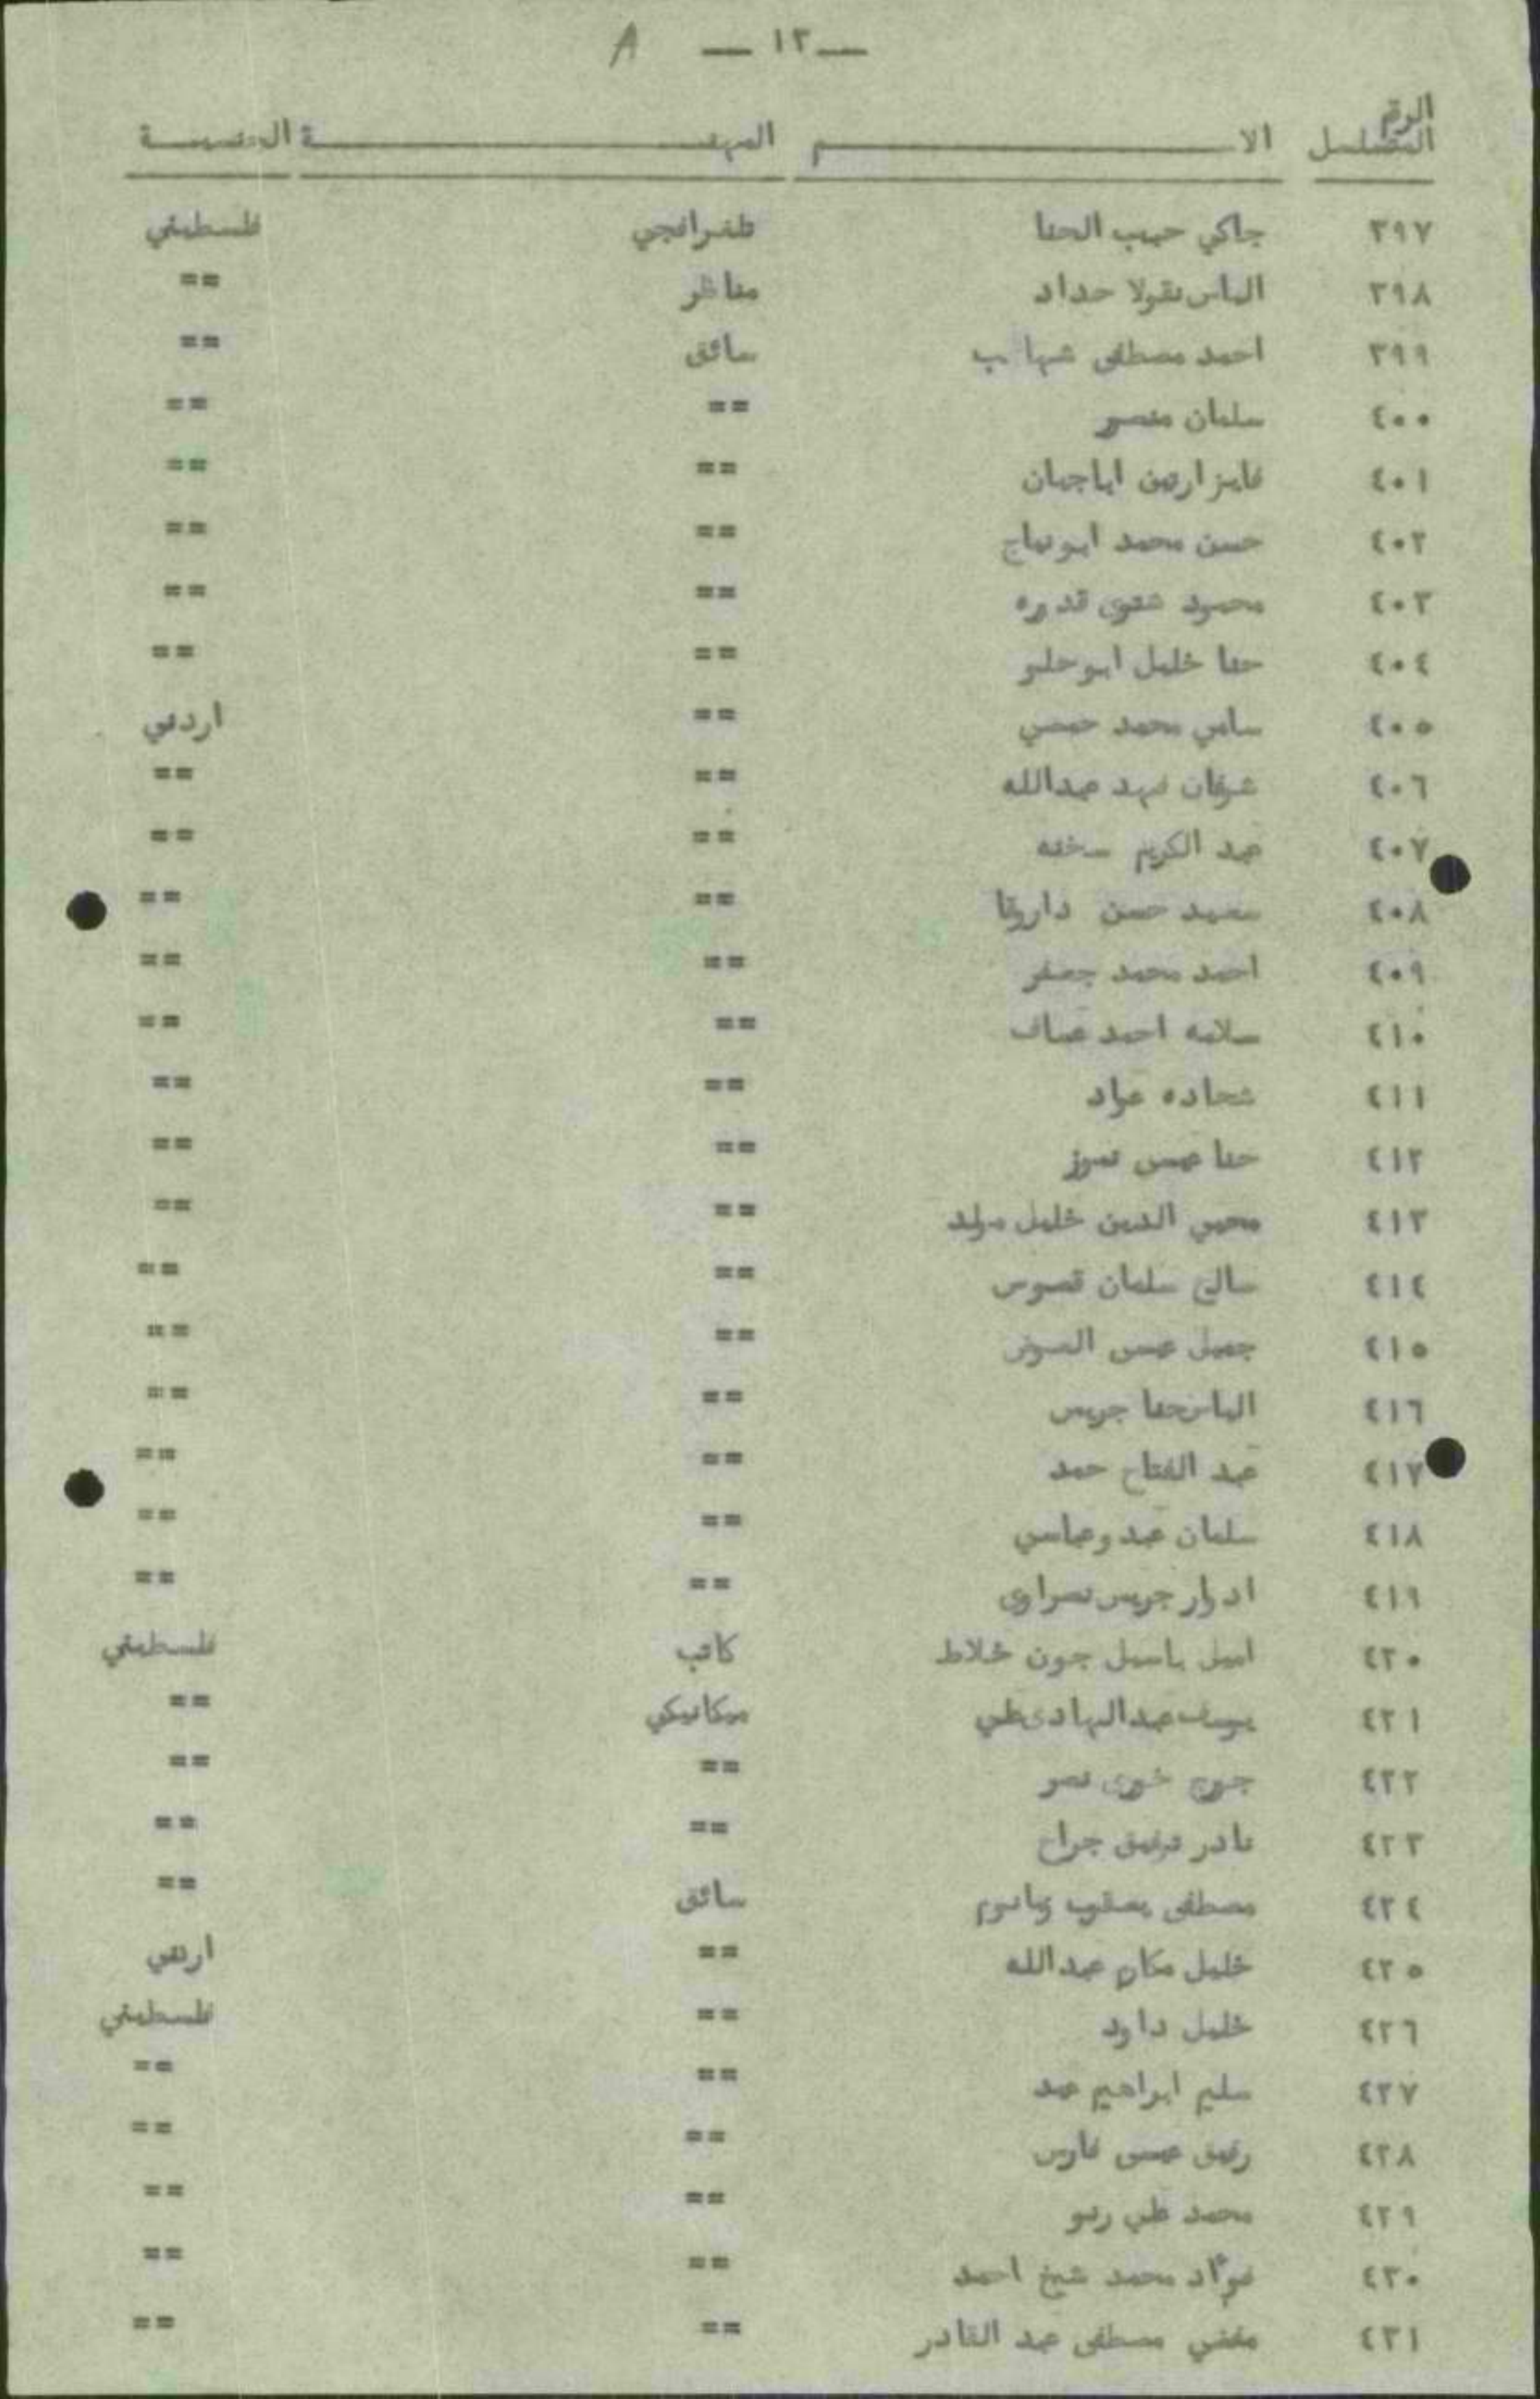 A — ١٣ —
الرقم
المتسلسل الاسم المهنة الجنسية
٣٩٧ جاكي حبيب الحنا تلغرافجي فلسطيني
٣٩٨ الياس نقولا حداد مناظر ==
٣٩٩ احمد مصطفى شهاب سائق ==
٤٠٠ سلمان منصور == ==
٤٠١ فايز ارتين اياجيان == ==
٤٠٢ حسن محمد ابو == ==
٤٠٣ محمود قدوره == ==
٤٠٤ حنا خليل ابو حلو == ==
٤٠٥ سامي محمد حمصي == اردني
٤٠٦ فهد عبدالله == ==
٤٠٧ عبد الكريم == ==
٤٠٨ سعيد حسن داروقا == ==
٤٠٩ احمد محمد جعفر == ==
٤١٠ سلامه احمد عساف == ==
٤١١ شحاده عواد == ==
٤١٢ حنا عيسى == ==
٤١٣ محيي الدين خليل == ==
٤١٤ سالم سلمان قسوس == ==
٤١٥ جميل عيسى == ==
٤١٦ الياس حنا جريس == ==
٤١٧ عبد الفتاح حمد == ==
٤١٨ سلمان عبد وعباسي == ==
٤١٩ ادوار جريس نصراوى == ==
٤٢٠ اميل باسيل جون خلاط كاتب فلسطيني
٤٢١ يوسف عبدالهادى علي ميكانيكي ==
٤٢٢ جورج خورى نصر == ==
٤٢٣ نادر توفيق جراح == ==
٤٢٤ مصطفى يعقوب سائق ==
٤٢٥ خليل عبدالله ==
٤٢٦ خليل داود == فلسطيني
٤٢٧ سليم ابراهيم عبد == ==
٤٢٨ رفيق عيسى فارس == ==
٤٢٩ محمد علي == ==
٤٣٠ فوءاد محمد شيخ احمد == ==
٤٣١ مصطفى عبد القادر == ==